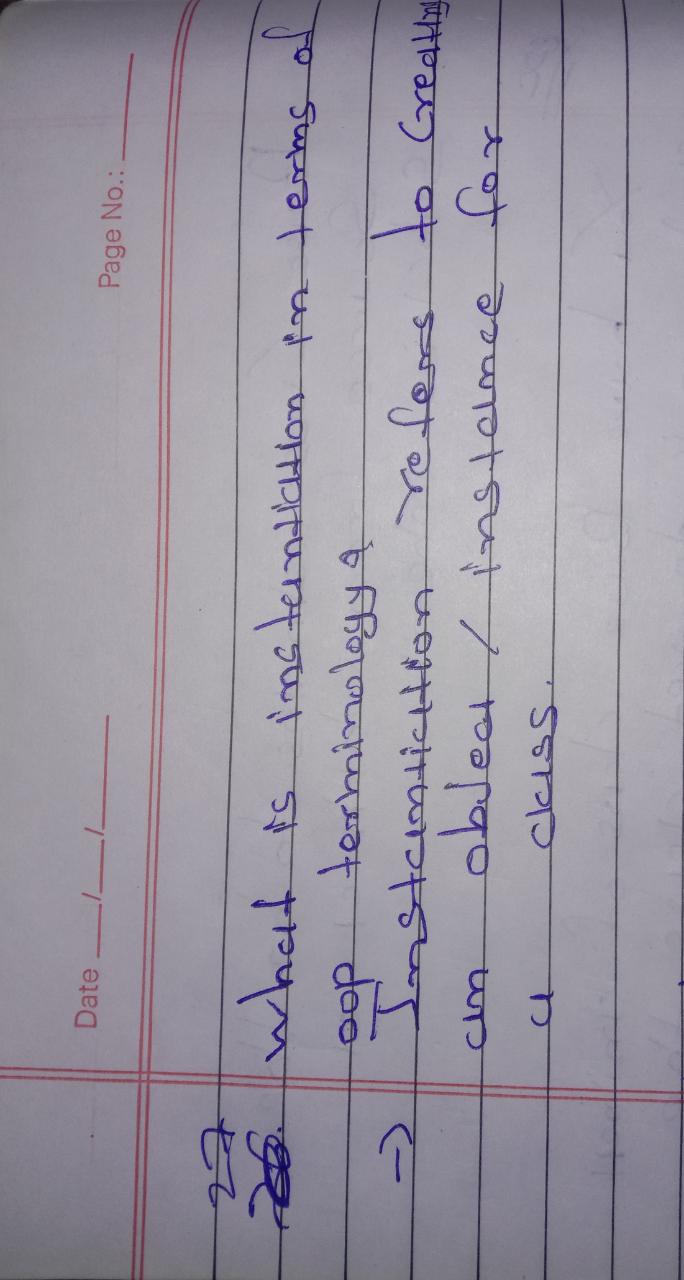 Date __/__/__ Page No.: ____
27
What is insterntiction in terms of
oop terminology?
→ Instantiation refers to Creating
an object / instance for
a class.